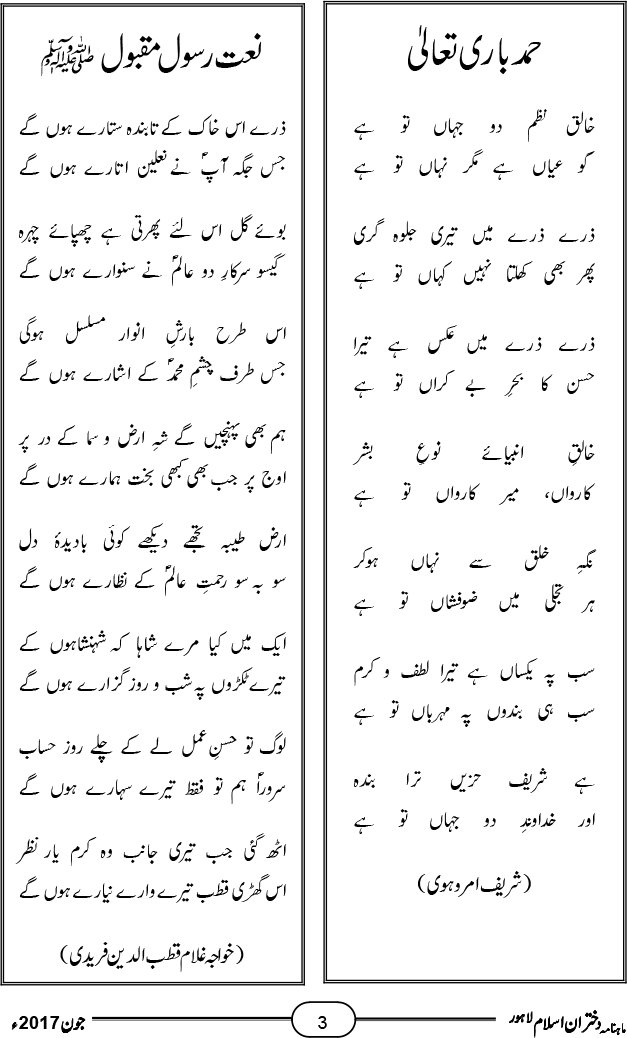 حمد باری تعالیٰ
خالق نظم دو جہاں تو ہے
کو عیاں ہے مگر نہاں تو ہے
ذرے ذرے میں تیری جلوہ گری
پھر بھی کھلتا نہیں کہاں تو ہے
ذرے ذرے میں عکس ہے تیرا
حسن کا بحرِ بے کراں تو ہے
خالقِ انبیائے نوعِ بشر
کارواں، میر کارواں تو ہے
نگہِ خلق سے نہاں ہوکر
ہر تجلی میں ضوفشاں تو ہے
سب پہ یکساں ہے تیرا لطف و کرم
سب ہی بندوں پہ مہرباں تو ہے
ہے شریف حزیں ترا بندہ
اور خداوندِ دو جہاں تو ہے
(شریف امروہوی)
نعت رسول مقبول ﷺ
ذرے اس خاک کے تابندہ ستارے ہوں گے
جس جگہ آپؐ نے نعلین اتارے ہوں گے
بوئے گل اس لئے پھرتی ہے چھپائے چہرہ
گیسو سرکارِ دو عالمؐ نے سنوارے ہوں گے
اس طرح بارشِ انوار مسلسل ہوگی
جس طرف چشمِ محمدؐ کے اشارے ہوں گے
ہم بھی پہنچیں گے شہِ ارض و سما کے در پر
اوج پر جب بھی کبھی بخت ہمارے ہوں گے
ارض طیبہ تجھے دیکھے کوئی بادیدۂ دل
سو بہ سو رحمتِ عالمؐ کے نظارے ہوں گے
ایک میں کیا مرے شاہا کہ شہنشاہوں کے
تیرے ٹکڑوں پہ شب و روز گزارے ہوں گے
لوگ تو حسنِ عمل لے کے چلے روز حساب
سرورؐا ہم تو فقط تیرے سہارے ہوں گے
اٹھ گئی جب تیری جانب وہ کرم یار نظر
اس گھڑی قطب تیرے وارے نیارے ہوں گے
(خواجہ غلام قطب الدین فریدی)
ماہنامہ دختران اسلام لاہور
3
جون 2017ء